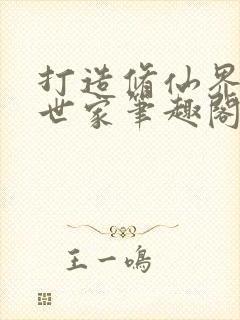 打造修仙界
世家笔趣阁
王一鸣